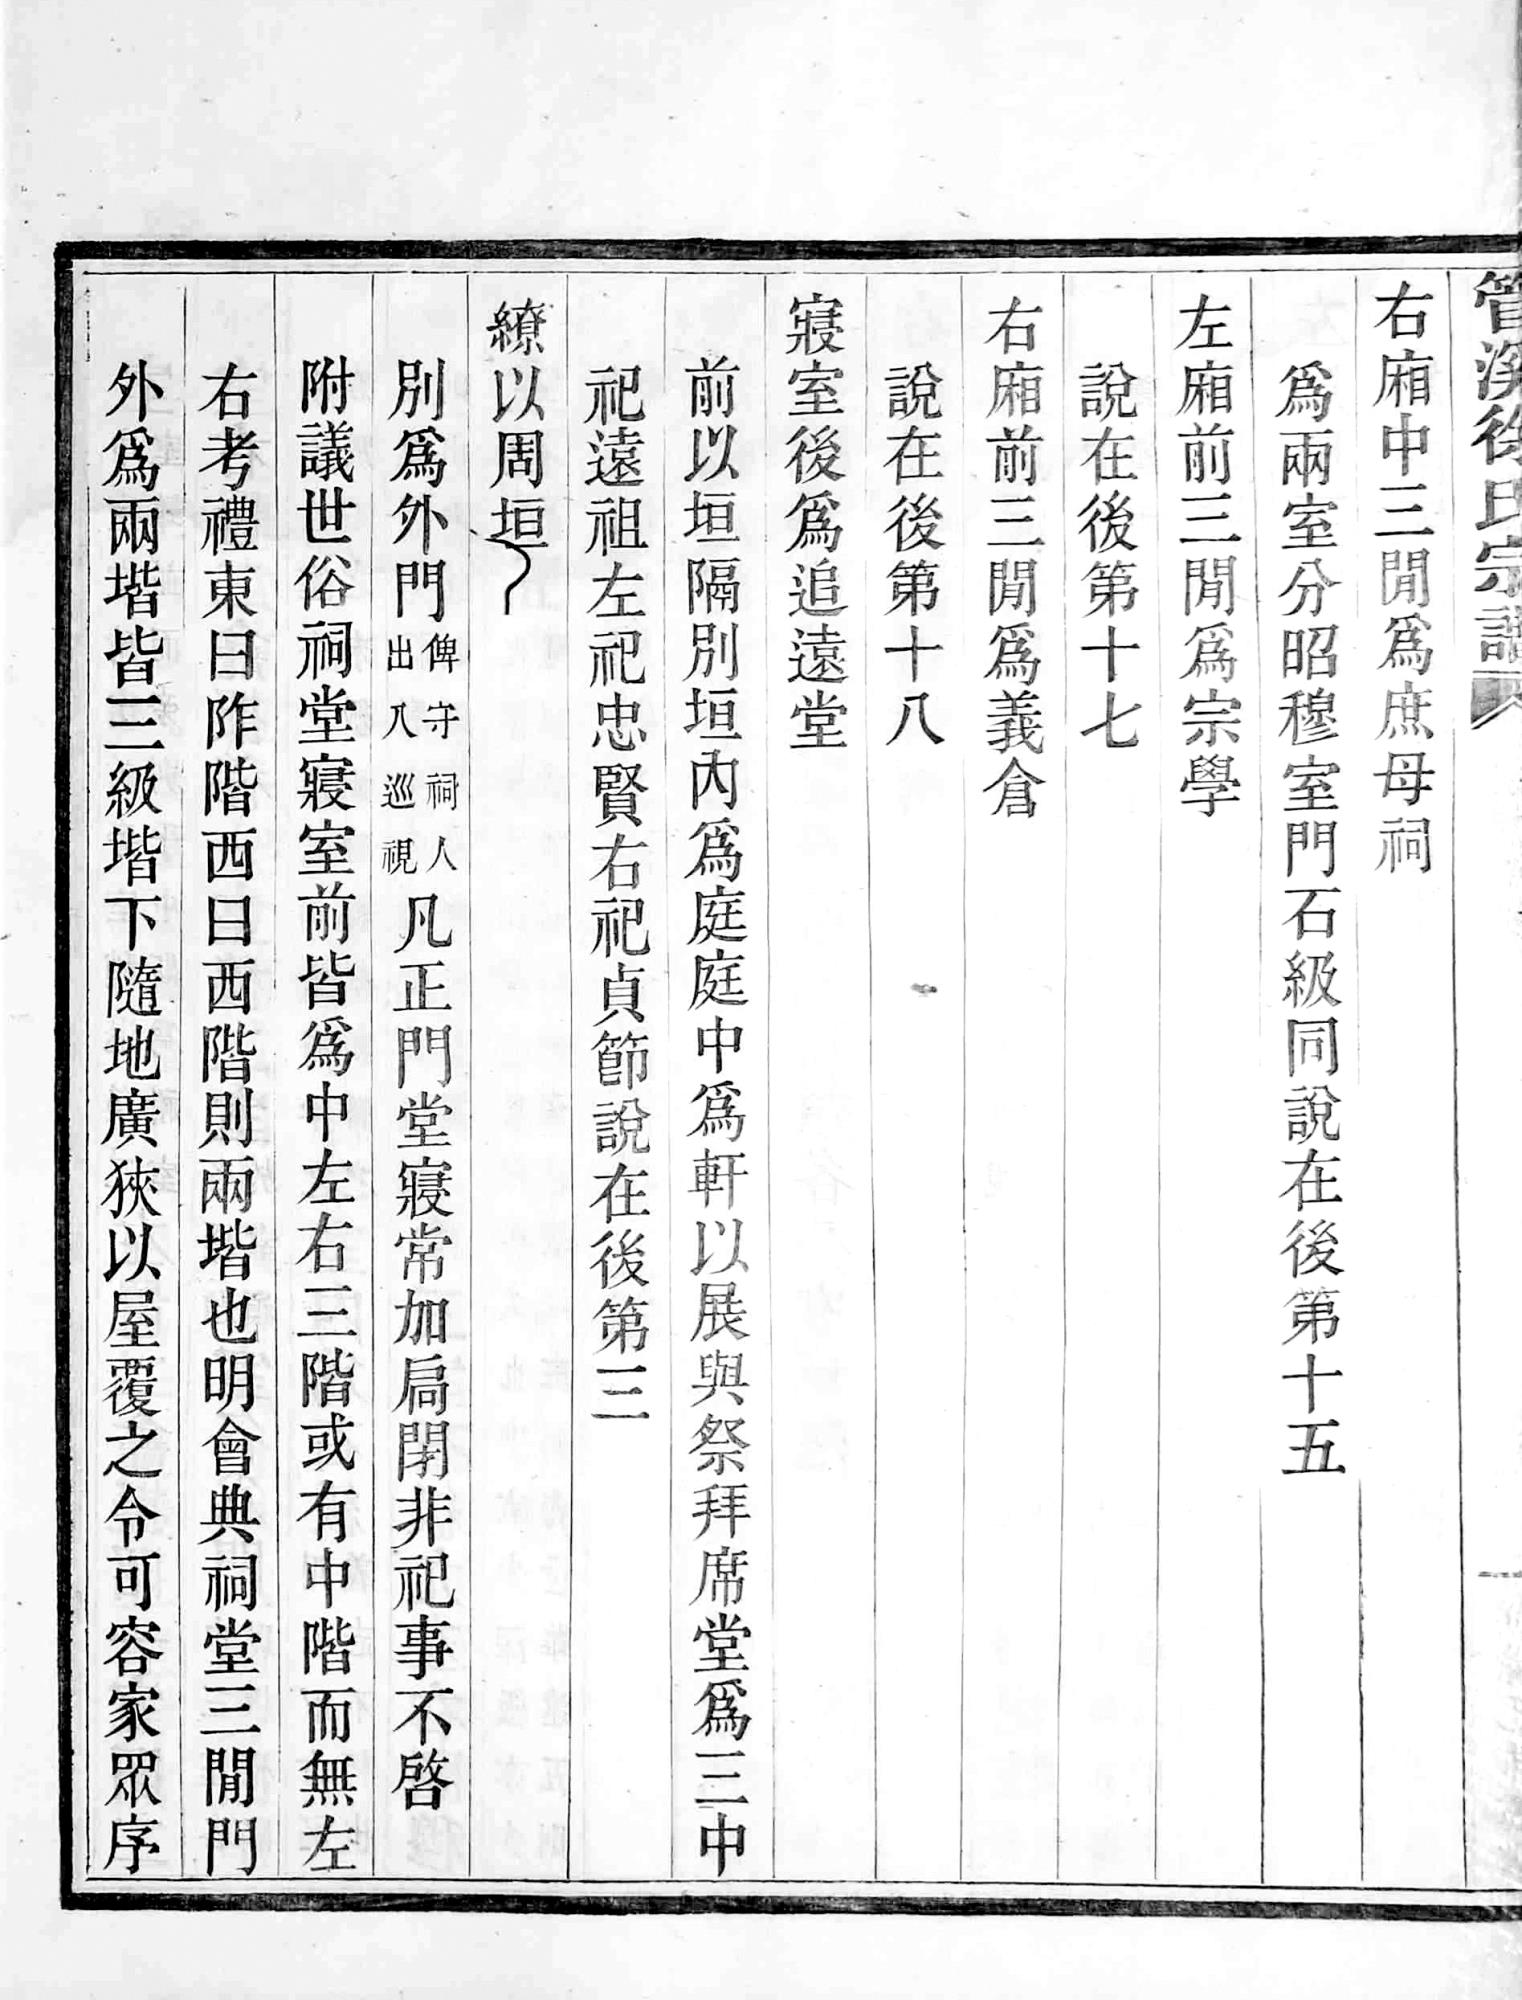 管溪徐氏宗譜
右廂中三閒爲庶母祠
爲兩室分昭穆室門石級同說在後第十五
左廂前三閒爲宗學
說在後第十七
右廂前三閒爲義倉
說在後第十八
寢室後爲追遠堂
前以垣隔別垣內爲庭庭中爲軒以展與祭拜席堂爲三中
祀遠祖左祀忠賢右祀貞節說在後第三
繚以周垣
別爲外門俾守祠人出入巡視凡正門堂寢常加扃閉非祀事不啓
附議世俗祠堂寢室前皆爲中左右三階或有中階而無左
右考禮東曰阼階西曰西階則兩堦也明會典祠堂三閒門
外爲兩堦皆三級堦下隨地廣狹以屋覆之令可容家眾序